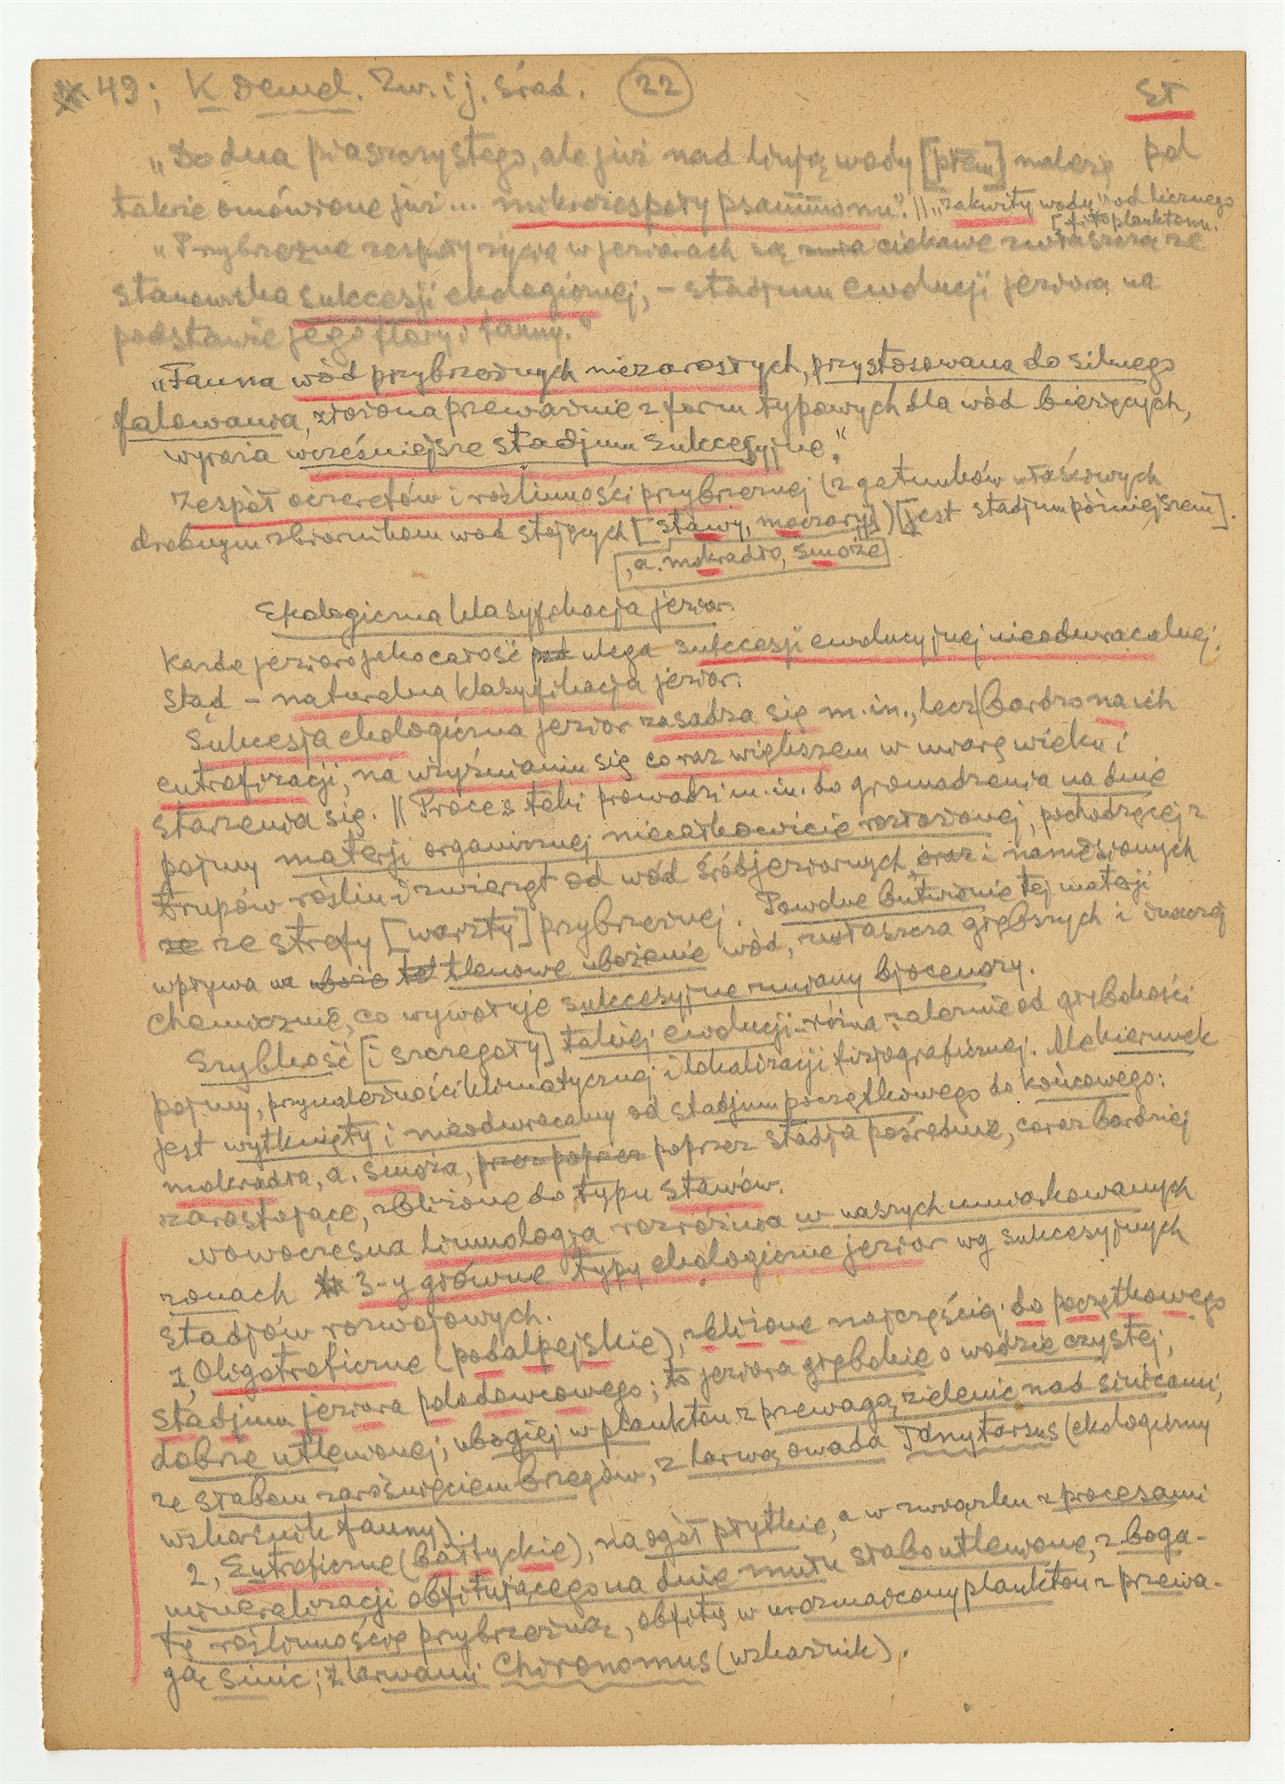 49; K Demel. Zw. i j. środ. (22) ST
„Do dna piaszczystego, ale już nad linją wody [płem] należą pol
także omówione już... mikrozespoły psammonu". || „zakwity wody" od licznego
[fitoplanktonu.
„Przybrzeżne zespoły życia w jeziorach są ciekawe zwłaszcza ze
stanowiska sukcesji ekologicznej, – stadjum ewolucji jeziora na
podstawie jego flory i fauny."
„Fauna wód przybrzeżnych niezarosłych, przystosowana do silnego
falowania, złożona przeważnie z form typowych dla wód bieżących,
wyraża wcześniejsze stadjum sukcesyjne."
Zespół oczeretów i roślinności przybrzeżnej (z gatunków właściwych
drobnym zbiornikom wód stojących [stawy, moczary]) [jest stadjum późniejszem].
[, a. mokradło, smoże]
Ekologiczna klasyfikacja jezior.
Każde jezioro jako całość pod ulega sukcesji ewolucyjnej nieodwracalnej.
Stąd – naturalna klasyfikacja jezior.
Sukcesja ekologiczna jezior zasadza się m. in., lecz bardzo na ich
eutrofizacji, na użyźnianiu się coraz większem w miarę wieku i
starzenia się. || Proces taki prowadzi m. in. do gromadzenia na dnie
pojmy materji organicznej niecałkowicie rozłożonej, pochodzącej z
trupów roślin i zwierząt od wód śródjeziornych, oraz i naniesionych
ze ze strefy [warzty] przybrzeżnej. Powolne butwienie tej materji
wpływa na uboże tel tlenowe ubożenie wód, zwłaszcza głębszych i inaczej
chemicznie, co wywołuje sukcesyjne zmiany biocenozy.
Szybkość [i szczegóły] takiej ewolucji – różna: zależnie od głębokości
pojmy, przynależności klimatycznej i lokalizacji fizjograficznej. Ale kierunek
jest wytknięty i nieodwracalny od stadjum początkowego do końcowego:
mokradła, a. smoża, przez poprzez poprzez stadja pośrednie, coraz bardziej
zarastające, zbliżone do typu stawów.
Nowoczesna limnologja rozróżnia w naszych umiarkowanych
zonach 3-y główne typy ekologiczne jezior wg sukcesyjnych
stadjów rozwojowych.
1, Oligotroficzne (podalpejskie), zbliżone najczęściej do początkowego
stadjum jeziora polodowcowego; to jeziora głębokie o wodzie czystej,
dobrze utlenionej; ubogiej w plankton z przewagą zielenic nad sinicami,
ze słabem zarośnięciem brzegów, z larwą owada Tanytarsus (ekologiczny
wskaźnik fauny).
2, Eutroficzne (bałtyckie), na ogół płytkie, a w związku z procesami
mineralizacji obfitującego na dnie mułu słabo utlenione, z boga-
tą roślinnością przybrzeżną, obfitą w urozmaicony plankton z przewa-
gą sinic; z larwami Chironomus (wskaźnik).